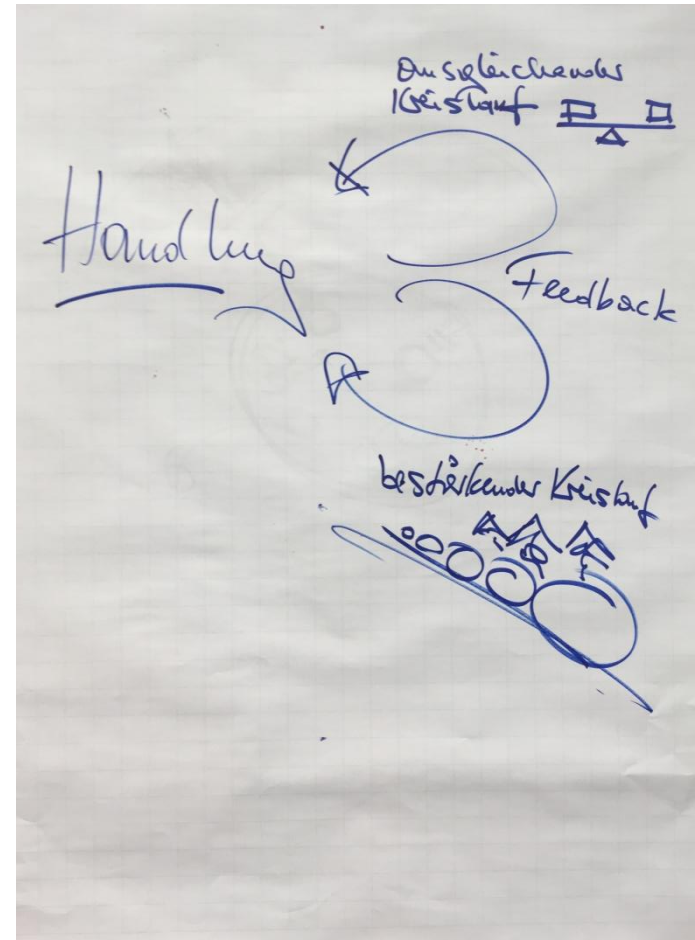 ausgleichender
Kreislauf
Handlung
Feedback
bestärkender Kreislauf